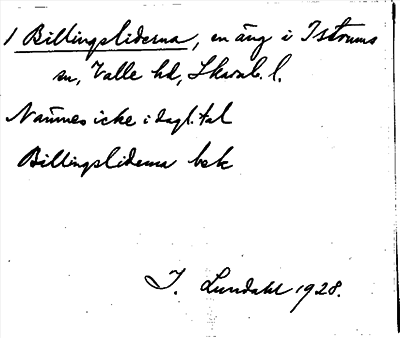 1 Billingsliderna, en äng i Istrums
sn, Valle hd, Skarab. l.
Nämnes icke i dagl. tal
Billingsliderna bek
I. Lundahl 1928.